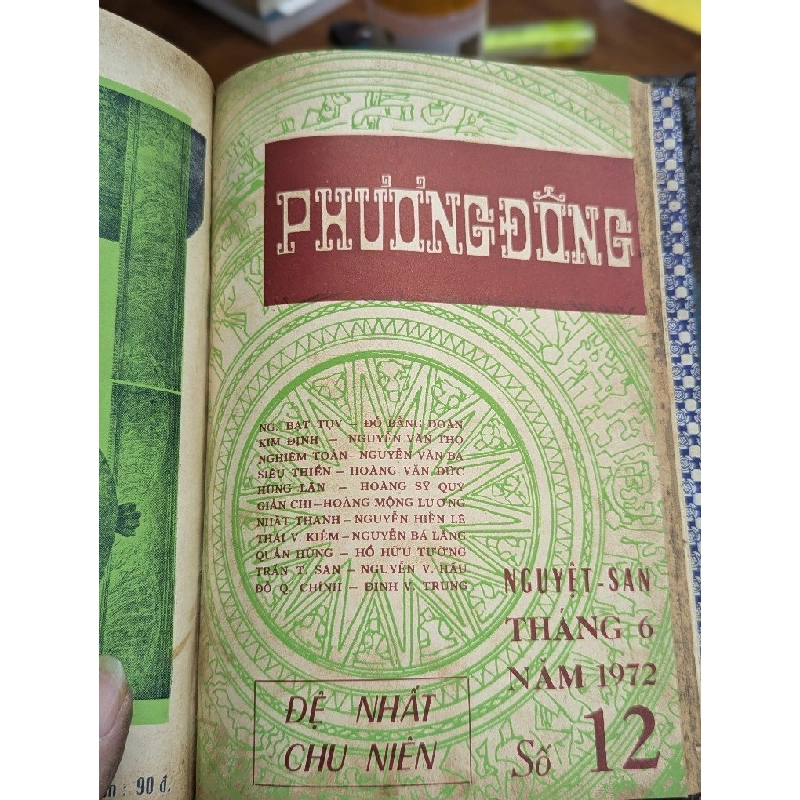 PHƯƠNG ĐÔNG
NG. BẠT TỤY – ĐỖ BẰNG ĐOÀN
KIM ĐỊNH – NGUYỄN VĂN THỌ
NGHIÊM TOẢN – NGUYỄN VĂN BA
SIÊU THIỀN – HOÀNG VĂN ĐỨC
HÙNG LÂN – HOÀNG SỸ QUÝ
GIẢN CHI – HOÀNG MỘNG LƯƠNG
NHẤT THANH – NGUYỄN HIẾN LÊ
THÁI V. KIỂM – NGUYỄN BÁ LĂNG
QUÂN HÙNG – HỒ HỮU TƯỜNG
TRẦN T. SAN – NGUYỄN V. HẦU
ĐỖ Q. CHÍNH – ĐINH V. TRUNG
NGUYỆT-SAN
THÁNG 6
NĂM 1972
Số 12
ĐỆ NHẤT
CHU NIÊN
: 90 đ.